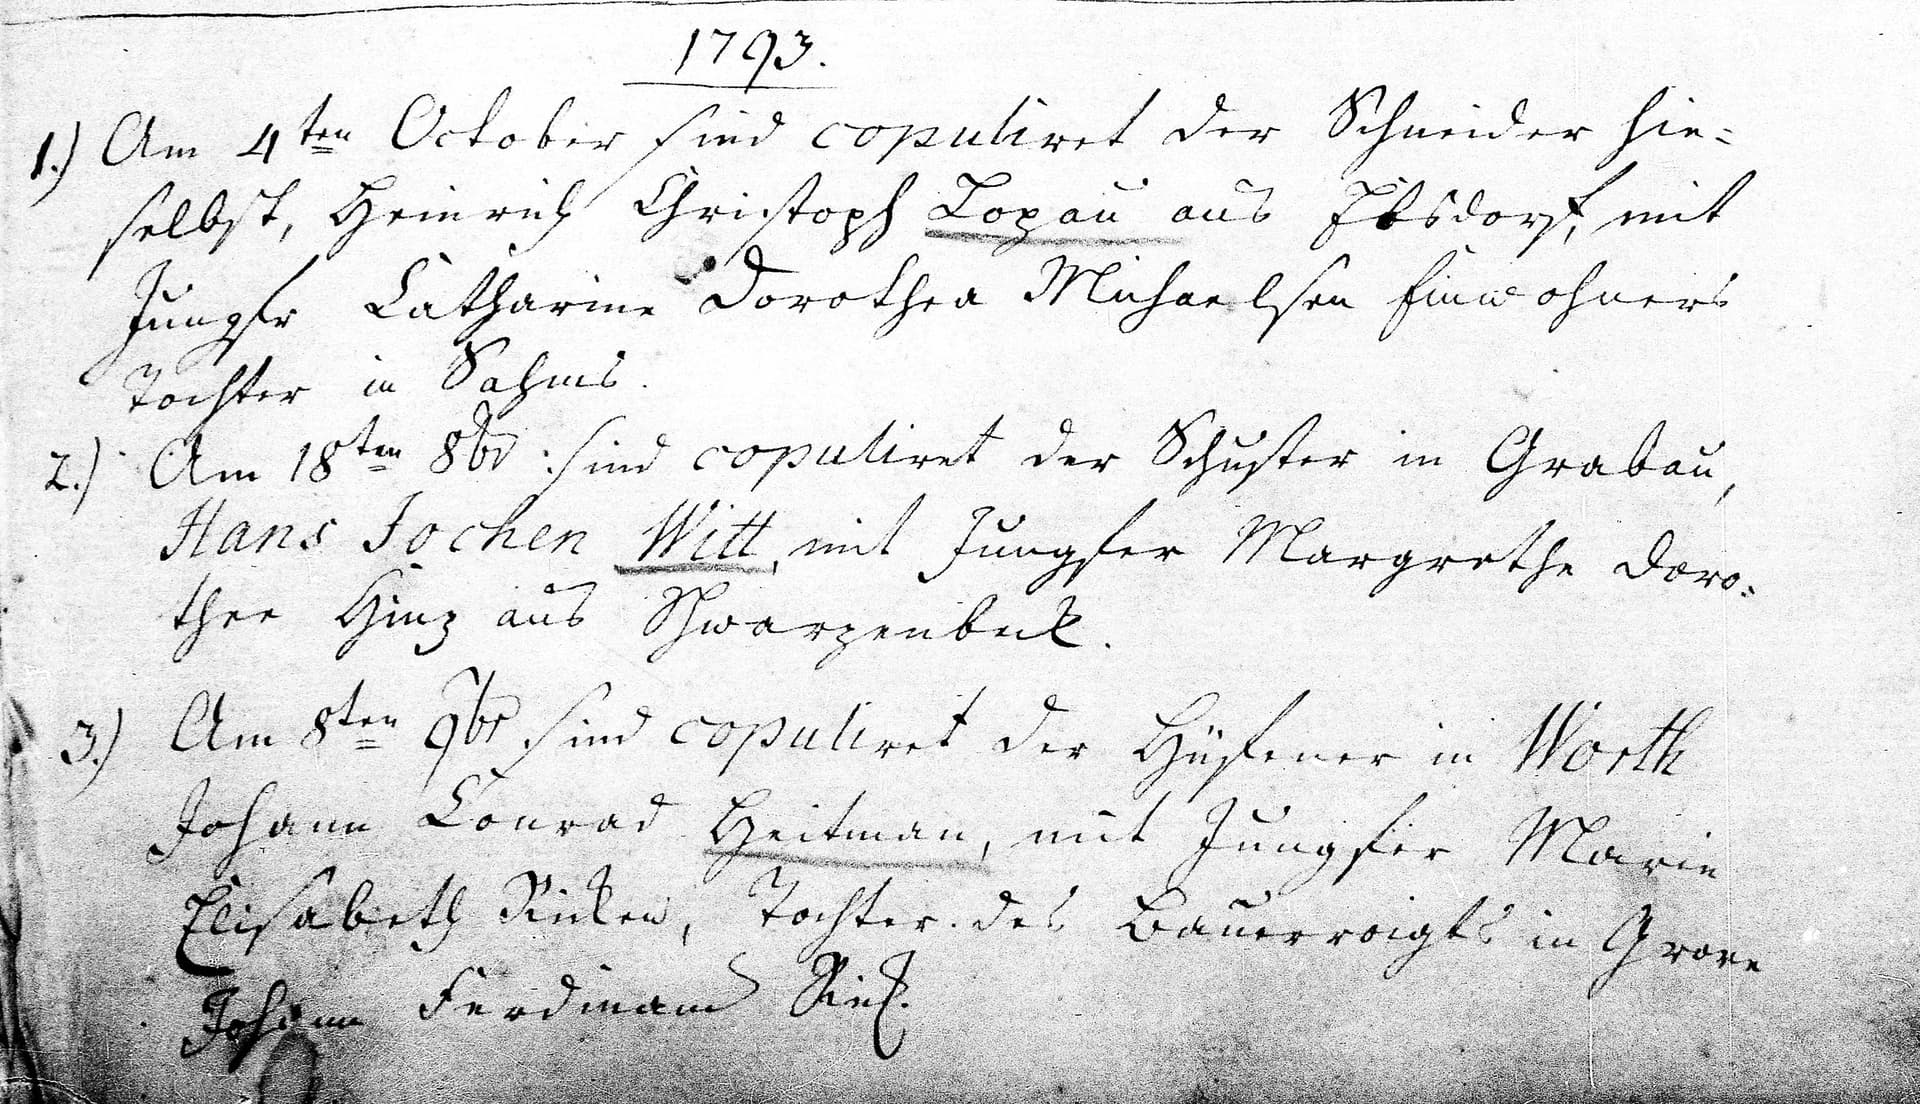 1793.
1.) Am 4ten October sind copuliret der Schneider hie=
selbst, Heinrich Christoph Lopau aus Ebsdorf, mit
Jungfr Catharine Dorothea Michaelsen Einwohners
Tochter in Sahms.
2.) Am 18ten 8br: sind copuliret der Schuster in Grabau,
Hans Jochen Witt, mit Jungfer Margrethe Doro=
thee Hinz aus Schwarzenbeck.
3.) Am 8ten 9br sind copuliret der Hüfener in Worth
Johann Conrad Heitman, mit Jungfer Marie
Elisabeth Rieken, Tochter des Bauervoigts in Grove
Johann Ferdinand Riek.